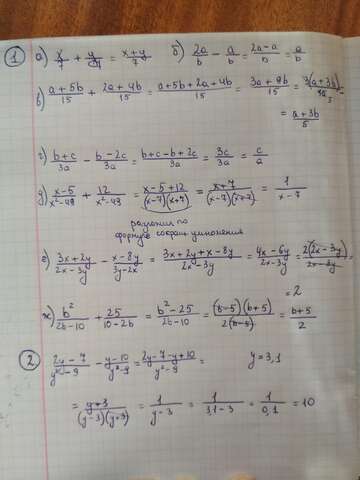 ① а) x/7 + y/7 = (x+y)/7 б) 2a/b - a/b = (2a-a)/b = a/b
в) (a+5b)/15 + (2a+4b)/15 = (a+5b+2a+4b)/15 = (3a+9b)/15 = 3(a+3b)/15 =
= (a+3b)/5
г) (b+c)/3a - (b-2c)/3a = (b+c-b+2c)/3a = 3c/3a = c/a
д) (x-5)/(x²-49) + 12/(x²-49) = (x-5+12)/((x-7)(x+7)) = (x+7)/((x-7)(x+7)) = 1/(x-7)
разложил по
формуле сокращ. умножения
е) (3x+2y)/(2x-3y) - (x-8y)/(3y-2x) = (3x+2y+x-8y)/(2x-3y) = (4x-6y)/(2x-3y) = 2(2x-3y)/(2x-3y) =
= 2
ж) b²/(2b-10) + 25/(10-2b) = (b²-25)/(2b-10) = (b-5)(b+5)/2(b-5) = (b+5)/2
② (2y-7)/(y²-9) - (y-10)/(y²-9) = (2y-7-y+10)/(y²-9) = y=3,1
= (y+3)/((y-3)(y+3)) = 1/(y-3) = 1/(3,1-3) = 1/0,1 = 10